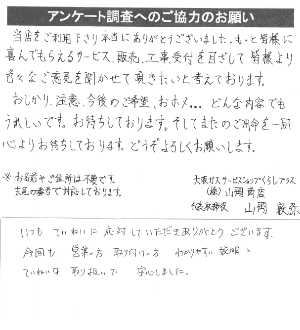 アンケート調査へのご協力のお願い
当店をご利用下さり本当にありがとうございました。もっと皆様に
喜んでもらえるサービス、販売、工事受付を目ざして皆様より
色々なご意見を聞かせて頂きたいと考えております。
おしかり、注意、今後のご希望、おホメ… どんな内容でも
うれしいです。お待ちしております。そしてまたのご用命を一同
心よりお待ちしております。どうぞよろしくお願いします。
※お名前やご住所は不要です。
大阪ガスサービスショップくらしプラス
左記の番号で対応しております。
(株)山岡商店
代表取締役 山岡
いつも ていねいに 応対していただきありがとうございます。
今回も 営業の方 取り付けの方 わかりやすい説明と
ていねいな 取り扱いで 安心しました。